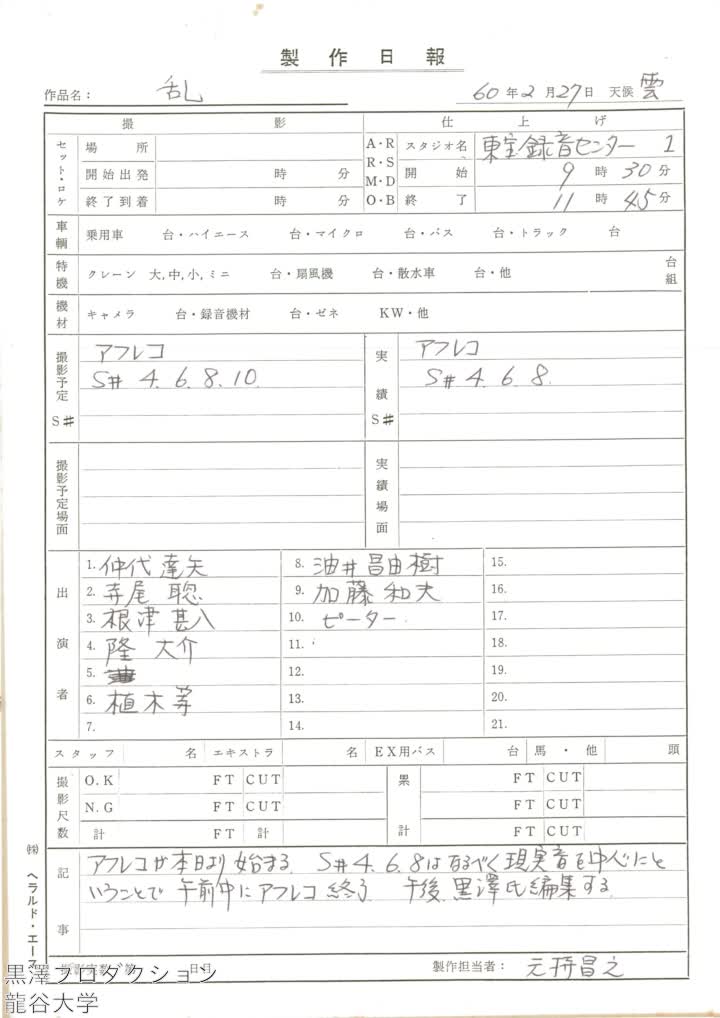 製作日報
作品名： 乱
60年2月27日 天候 雲
撮影
仕上げ
セット・ロケ
場所
開始出発 時 分
終了到着 時 分
A・R
R・S
M・D
O・B
スタジオ名 東宝録音センター 1
開始 9時30分
終了 11時45分
車輌 乗用車 台・ハイエース 台・マイクロ 台・バス 台・トラック 台
特機 クレーン 大,中,小,ミニ 台・扇風機 台・散水車 台・他 台組
機材 キャメラ 台・録音機材 台・ゼネ KW・他
撮影予定 S#
アフレコ
S# 4. 6. 8. 10.
実績 S#
アフレコ
S# 4. 6. 8.
撮影予定場面
実績場面
出演者
1. 仲代達矢
2. 寺尾聰
3. 根津甚八
4. 隆大介
5.
6. 植木等
7.
8. 油井昌由樹
9. 加藤和夫
10. ピーター
11.
12.
13.
14.
15.
16.
17.
18.
19.
20.
21.
スタッフ 名 エキストラ 名 EX用バス 台 馬・他 頭
撮影尺数
O.K FT CUT
N.G FT CUT
計 FT 計
累計
FT CUT
FT CUT
FT CUT
記事
アフレコが本日より始まる. S#4.6.8はなるべく現実音を中心にと
いうことで午前中にアフレコ終了 午後、黒澤氏編集する.
撮影実数 第 日目
製作担当者：
㈱ ヘラルド・エース
黒澤プロダクション
龍谷大学